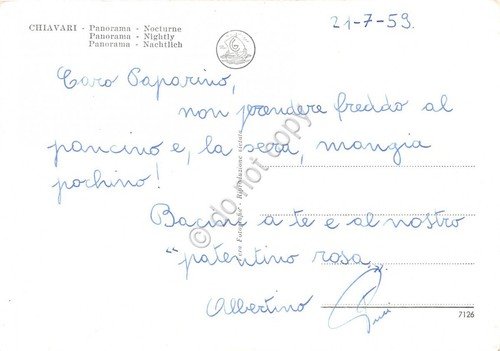 21-7-59.
CHIAVARI - Panorama - Nocturne
Panorama - Nightly
Panorama - Nachtlich
Caro Paparino,
non prendere freddo al
pancino e, la sera, mangia
pochino!
Bacini a te e al nostro
"patentino rosa„
Albertino
Vera Fotografia - Riproduzione vietata
7126
do not copy